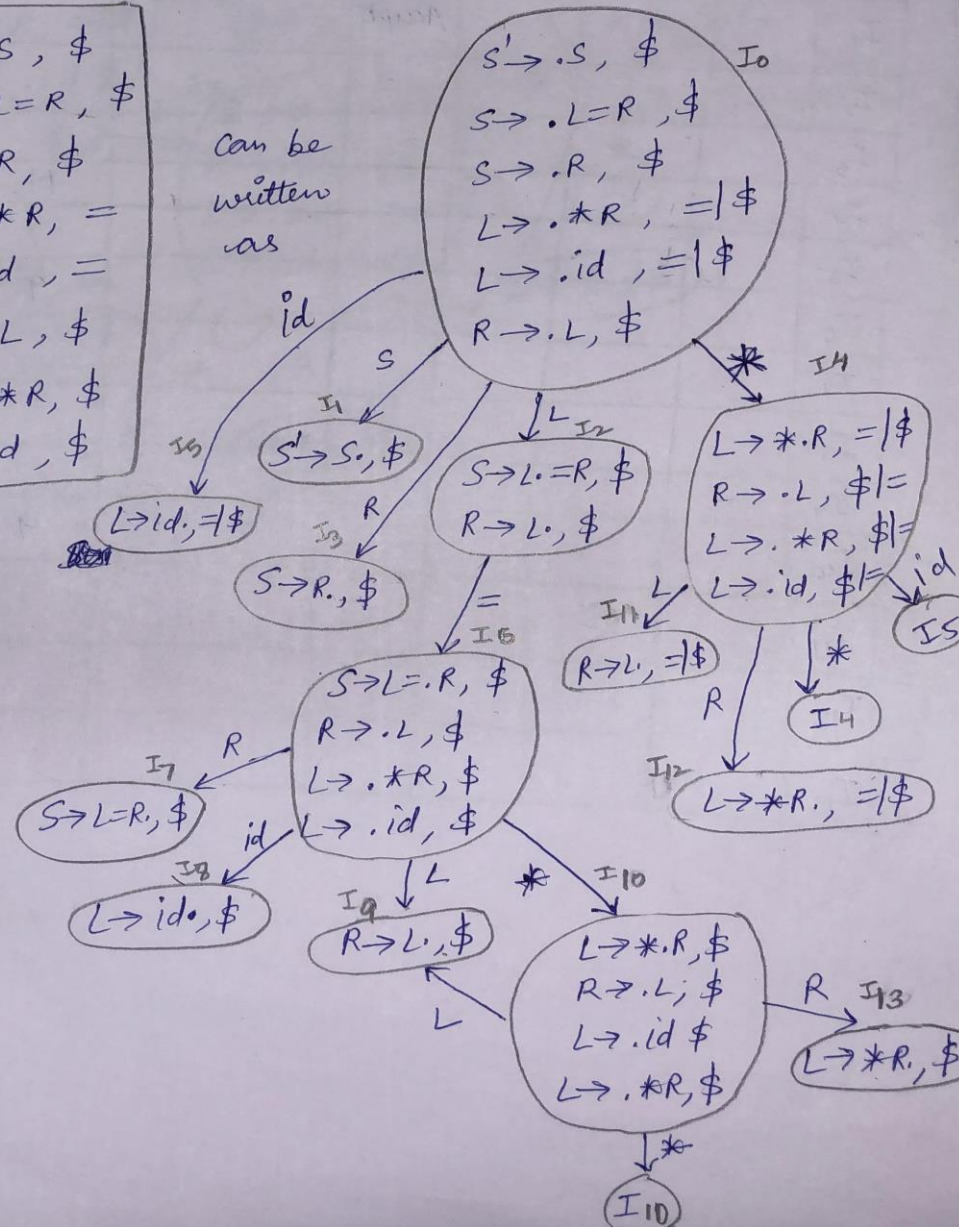 S, $
L=R, $
R, $
*R, =
d, =
L, $
*R, $
d, $
can be
written
as
I0
S'→.S, $
S→.L=R, $
S→.R, $
L→.*R, =|$
L→.id, =|$
R→.L, $
id
S
R
L
*
I5
L→id., =|$
I1
S'→S., $
I3
S→R., $
I2
S→L.=R, $
R→L., $
=
I4
L→*.R, =|$
R→.L, $|=
L→.*R, $|=
L→.id, $|=
id
I5
L
I11
R→L., =|$
*
I4
R
I12
L→*R., =|$
I6
S→L=.R, $
R→.L, $
L→.*R, $
L→.id, $
R
I7
S→L=R., $
id
I8
L→id., $
L
I9
R→L., $
*
I10
L→*.R, $
R→.L; $
L→.id $
L→.*R, $
L
R
I13
L→*R., $
*
I10